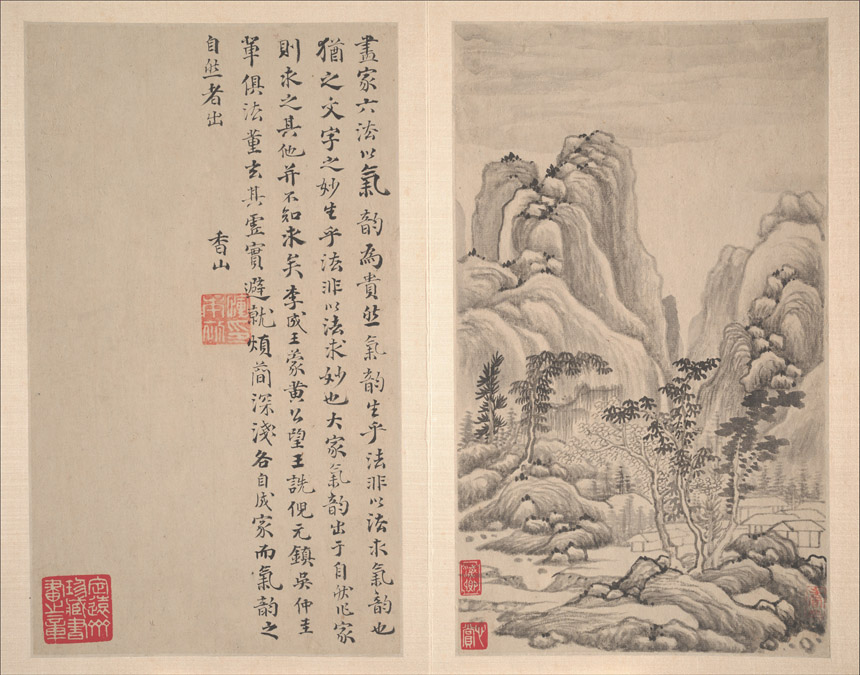 畫家六法以氣韵為貴然氣韵生乎法非以法求氣韵也
猶之文字之妙生乎法非以法求妙也大家氣韵出于自然作家
則求之其他并不知求矣李成王蒙黄公望王詵倪元鎮吳仲圭
輩俱法董玄其虛實避就煩簡深淺各自成家而氣韵之
自然者出
香山
珍藏書
畫之章
心賞